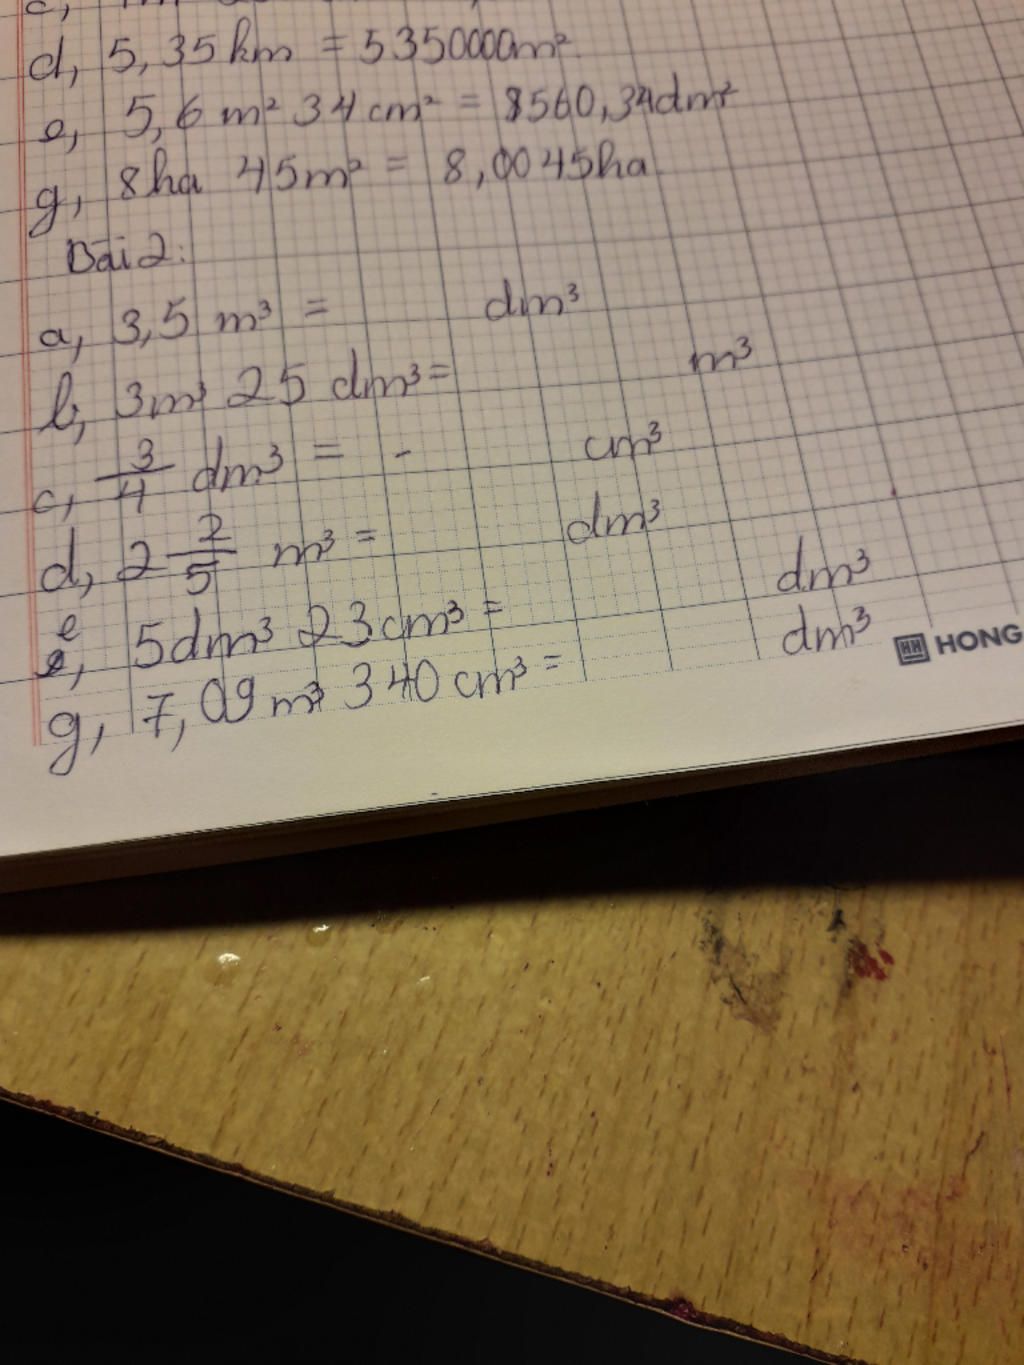 d, 5,35km = 5350000m²
e, 5,6m² 34cm² = 8560,34dm²
g, 8ha 45m² = 8,0045ha
Bài 2:
a, 3,5 m³ = dm³
b, 3m³ 25 dm³ = m³
c, 3/4 dm³ = - cm³
d, 2 2/5 m³ = dm³
e, 5dm³ 23cm³ = dm³
g, 7,09m³ 340cm³ = dm³
HONG